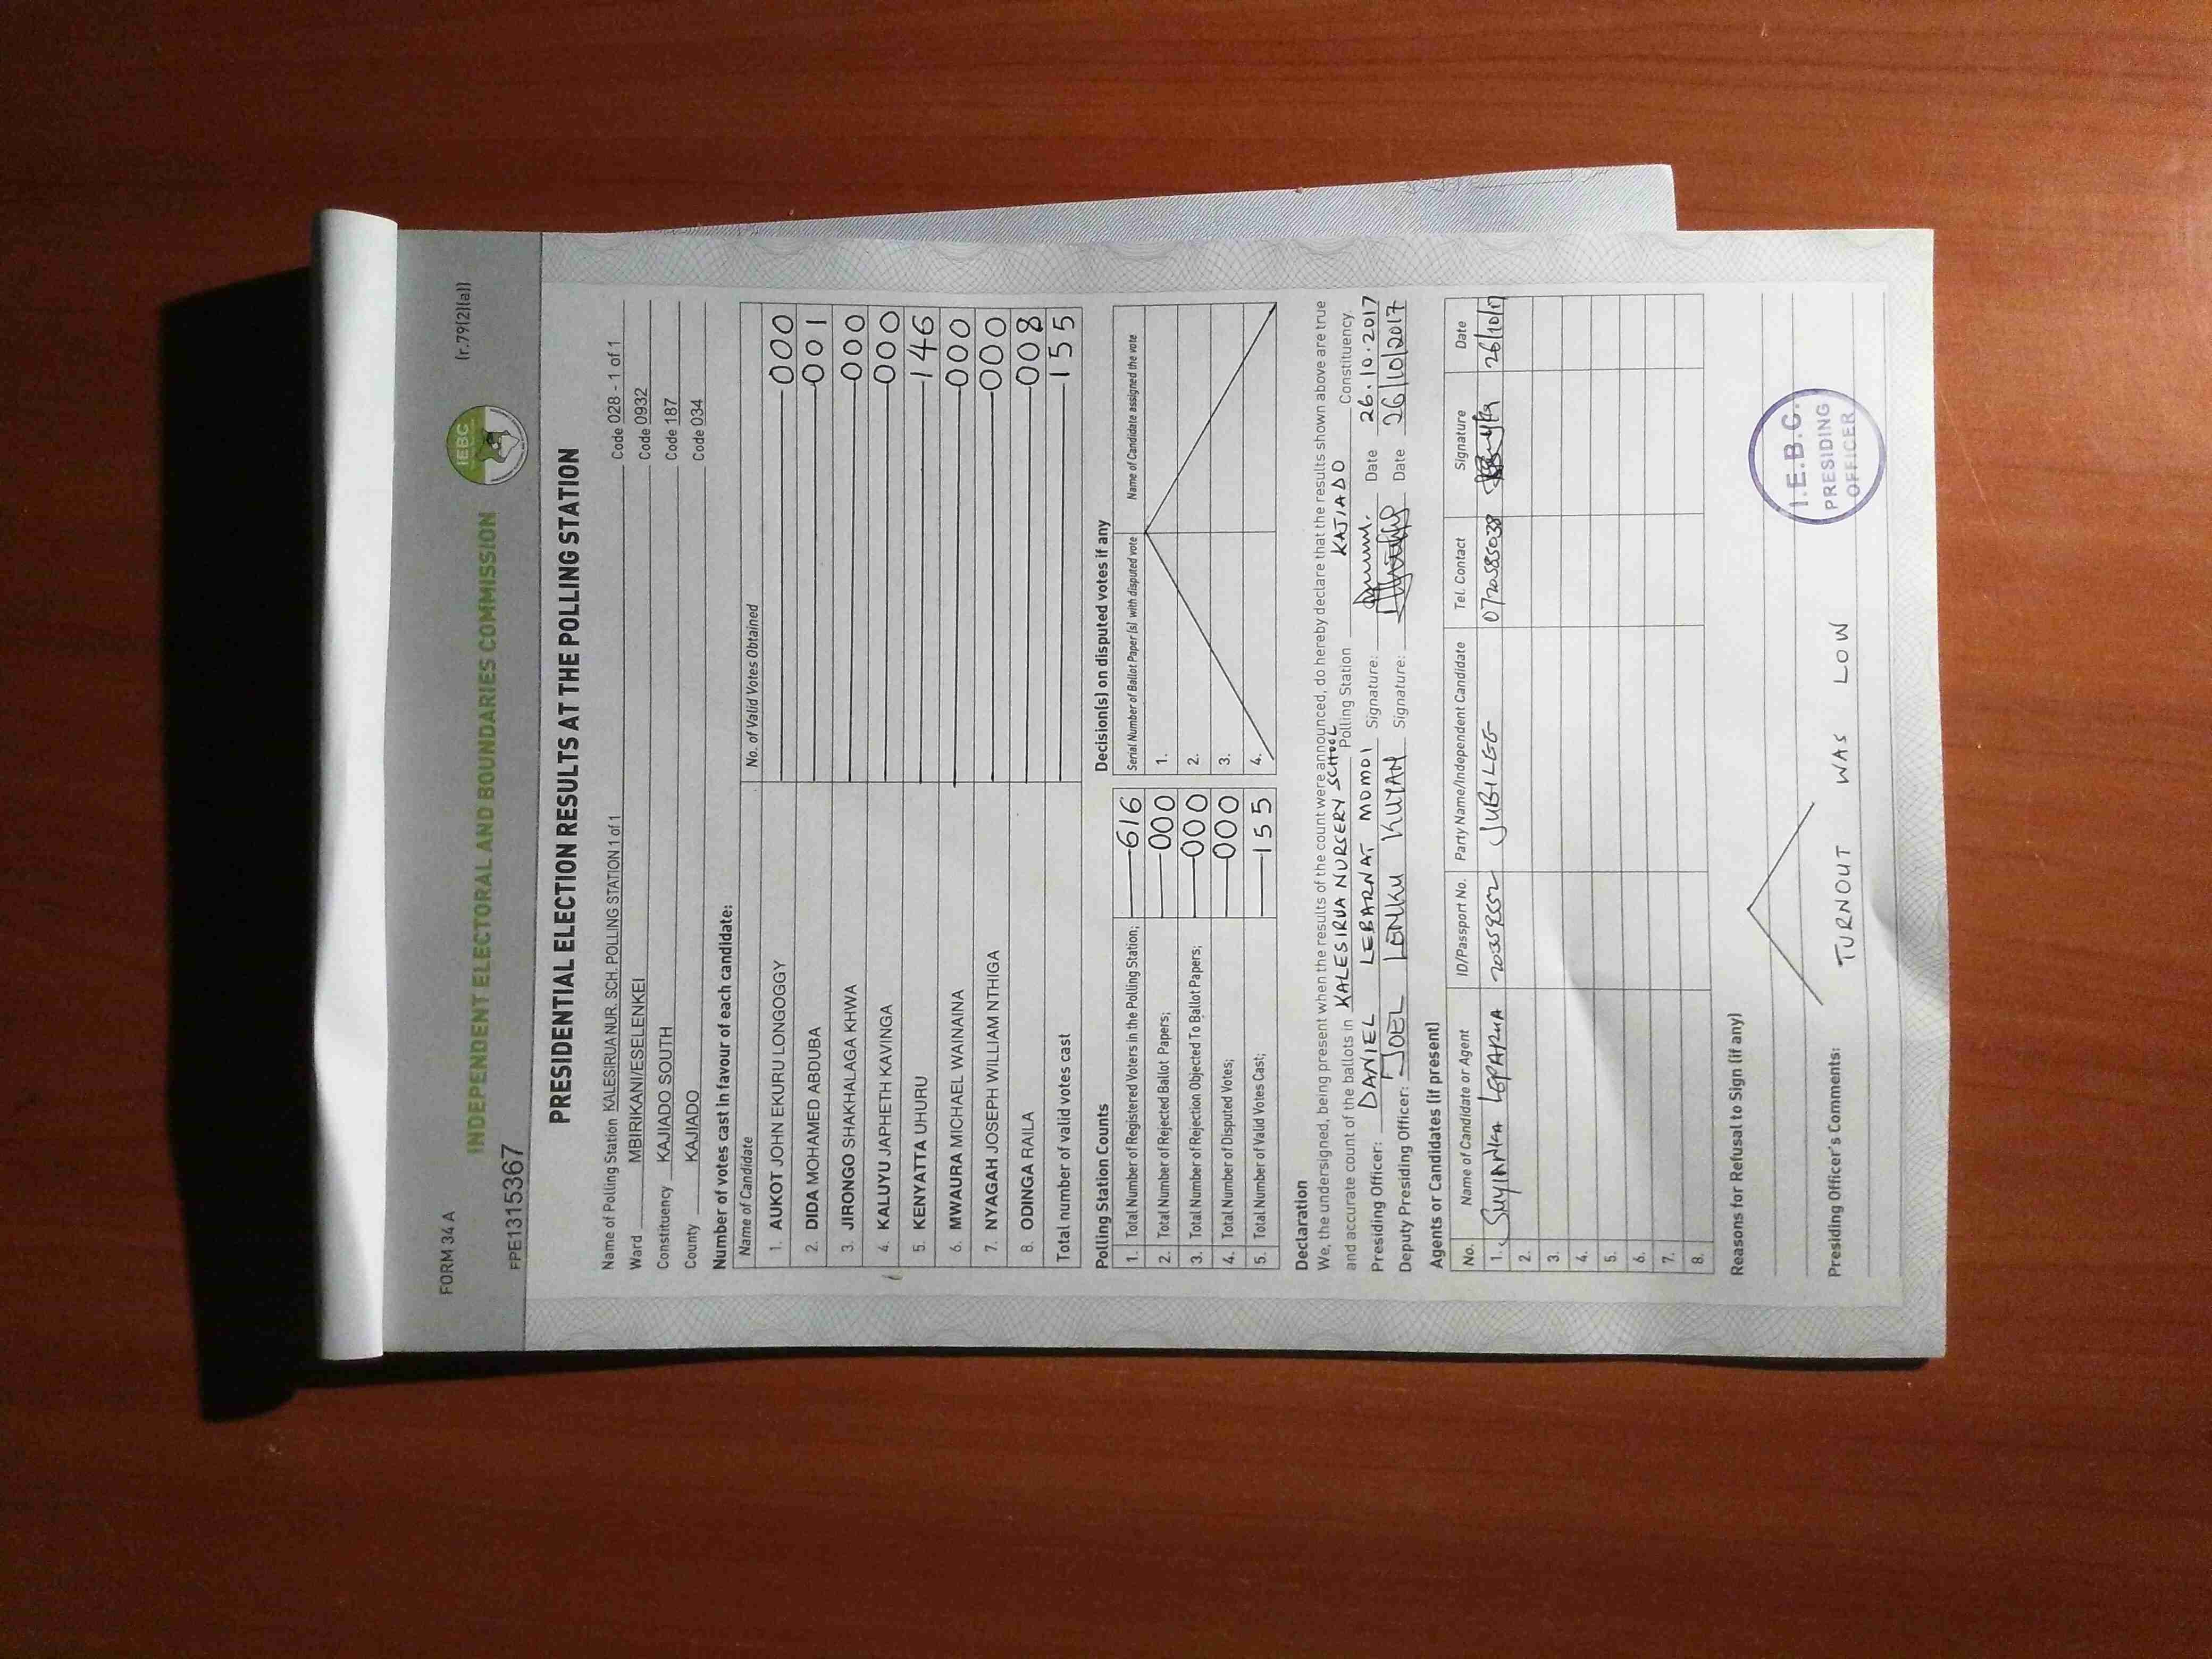 FORM 34 A
(r.79(2)(a))
INDEPENDENT ELECTORAL AND BOUNDARIES COMMISSION
IEBC
FPE1315367
PRESIDENTIAL ELECTION RESULTS AT THE POLLING STATION
Name of Polling Station KALESIRUA NUR. SCH. POLLING STATION 1 of 1 Code 028 - 1 of 1
Ward MBIRIKANI/ESELENKEI Code 0932
Constituency KAJIADO SOUTH Code 187
County KAJIADO Code 034
Number of votes cast in favour of each candidate:
Name of Candidate No. of Valid Votes Obtained
1. AUKOT JOHN EKURU LONGOGGY 000
2. DIDA MOHAMED ABDUBA 001
3. JIRONGO SHAKHALAGA KHWA 000
4. KALUYU JAPHETH KAVINGA 000
5. KENYATTA UHURU 146
6. MWAURA MICHAEL WAINAINA 000
7. NYAGAH JOSEPH WILLIAM NTHIGA 000
8. ODINGA RAILA 008
Total number of valid votes cast 155
Polling Station Counts
1. Total Number of Registered Voters in the Polling Station; 616
2. Total Number of Rejected Ballot Papers; 000
3. Total Number of Rejection Objected To Ballot Papers; 000
4. Total Number of Disputed Votes; 000
5. Total Number of Valid Votes Cast; 155
Decision(s) on disputed votes if any
Serial Number of Ballot Paper (s) with disputed vote Name of Candidate assigned the vote
1.
2.
3.
4.
Declaration
We, the undersigned, being present when the results of the count were announced, do hereby declare that the results shown above are true
and accurate count of the ballots in KALESIRUA NURCERY SCHOOL Polling Station KAJIADO Constituency.
Presiding Officer: DANIEL LEBARNAT MOMOI Signature: Date 26.10.2017
Deputy Presiding Officer: JOEL LEMKU KUYAN Signature: Date 26/10/2017
Agents or Candidates (if present)
No. Name of Candidate or Agent ID/Passport No. Party Name/Independent Candidate Tel. Contact Signature Date
1. SUYIANKA LEPARUA JUBILEE 26/10/17
2.
3.
4.
5.
6.
7.
8.
Reasons for Refusal to Sign (if any)
Presiding Officer's Comments:
TURNOUT WAS LOW
I.E.B.C.
PRESIDING
OFFICER